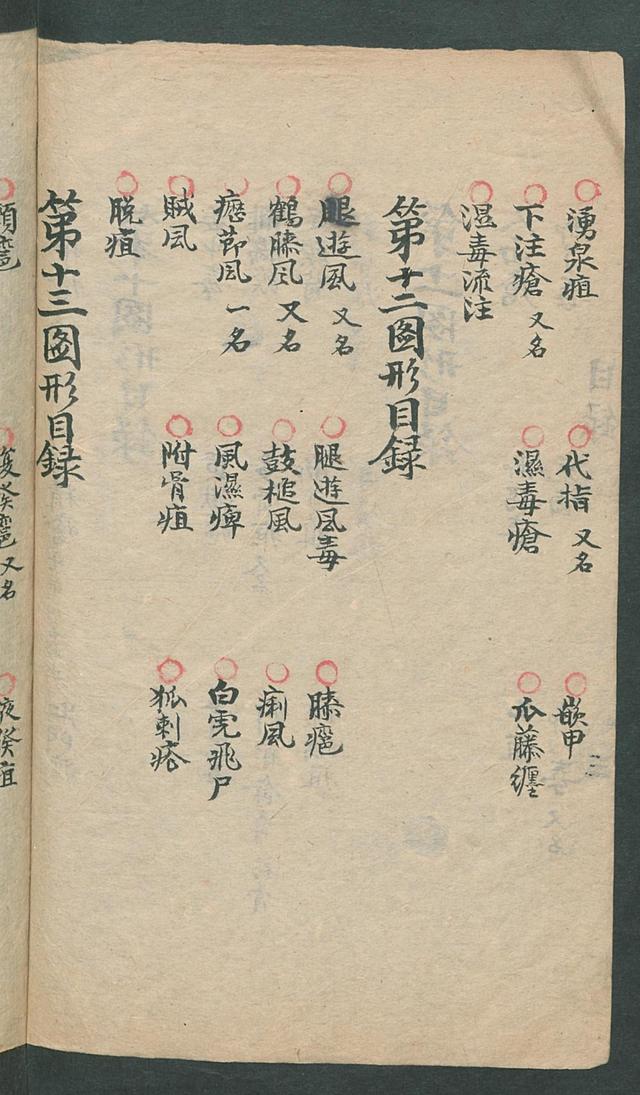 湧泉疽 代指又名 嵌甲
下注瘡又名 濕毒瘡 瓜藤纏
濕毒流注
第十二圖形目録
腿遊風又名 腿遊风毒 膝瘡
鶴膝风又名 鼓槌風 痢風
癧節风一名 風濕痺 白虎飛尸
賊风 附骨疽 狐刺瘡
脱疽
第十三圖形目録